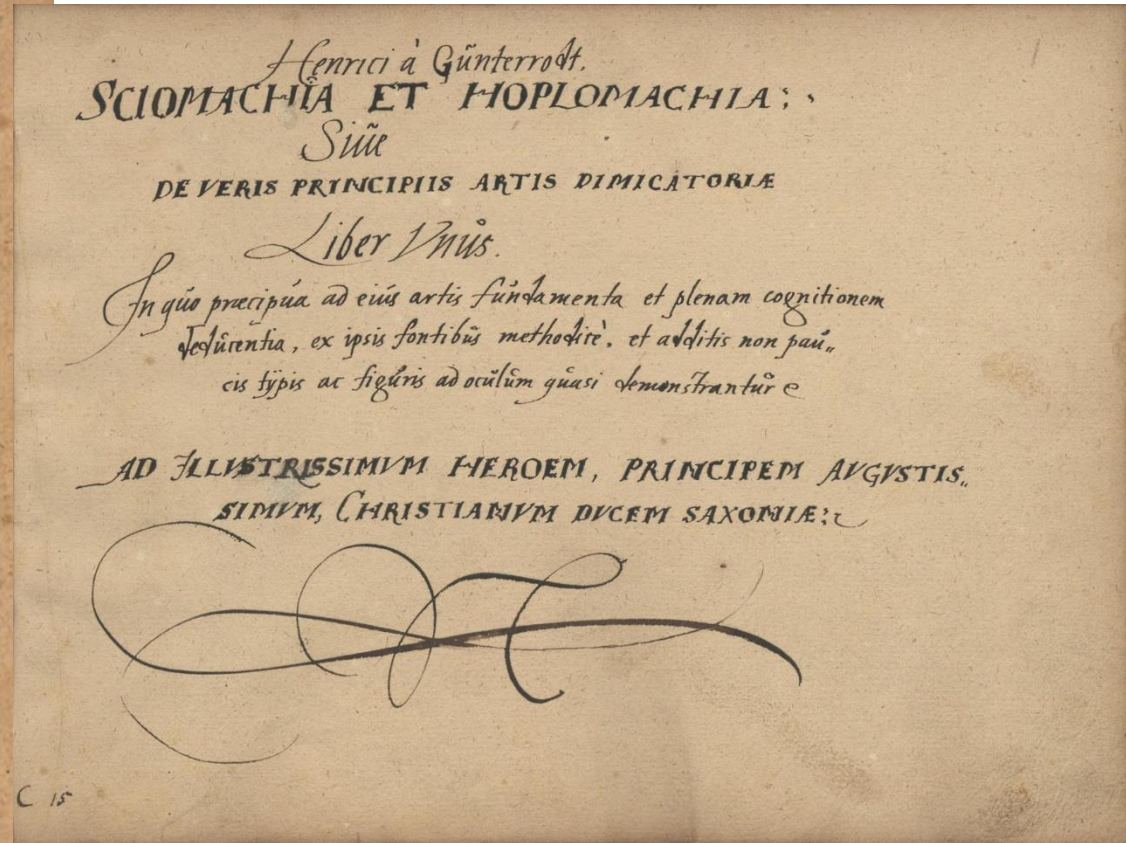 Henrici à Günterrodt.
SCIOMACHIA ET HOPLOMACHIA:
Siüe
DE VERIS PRINCIPIIS ARTIS DIMICATORIÆ
Liber Vnůs.
In qůo præcipůa ad eiůs artis fůndamenta et plenam cognitionem
dedůcentia, ex ipsis fontibůs methodicè, et additis non pau„
cis typis ac figůris ad ocůlům qůasi demonstrantůr
AD ILLVSTRISSIMVM HEROEM, PRINCIPEM AVGVSTIS„
SIMVM, CHRISTIANVM DVCEM SAXONIÆ:
C 15